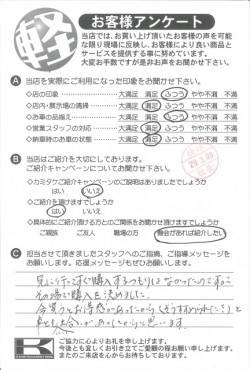 軽
お客様アンケート
当店では、お買い上げ頂いたお客様の声を可能
な限り現場に反映し、お客様により良い商品と
サービスを提供する事に努めています。
大変お手数ですが是非お声をお聞かせ下さい。
A 当店を実際にご利用になった印象をお聞かせ下さい。
◇店の印象 ・・・ 大満足 満足 ふつう やや不満 不満
◇店内・展示場の清掃 ・・・ 大満足 満足 ふつう やや不満 不満
◇お車の品揃え ・・・ 大満足 満足 ふつう やや不満 不満
◇営業スタッフの対応 ・・・ 大満足 満足 ふつう やや不満 不満
◇納車時のお車の状態 ・・・ 大満足 満足 ふつう やや不満 不満
B 当店はご紹介を大切にしております。
ご紹介キャンペーンについてお聞かせ下さい。
◇カミタケご紹介キャンペーンのご説明はありましたでしょうか
はい いいえ
◇ご紹介をお願いできますでしょうか
はい いいえ
◇具体的にご紹介頂ける方とのご関係をお聞かせ頂けますでしょうか
ご親族 ご友人 職場の方 機会があれば紹介したい
C 担当させて頂きましたスタッフへのご指摘、ご指導メッセージを
お願いします。応援メッセージもぜひお願いします。
見に行ってすぐ購入するつもりはなかったのですが
その場で購入を決めました。
ご協力に心よりお礼を申し上げます。
今後とも宜しくお引き立てご愛顧の程お願い申し上げます。
またのご来店を心からお待ちしております。